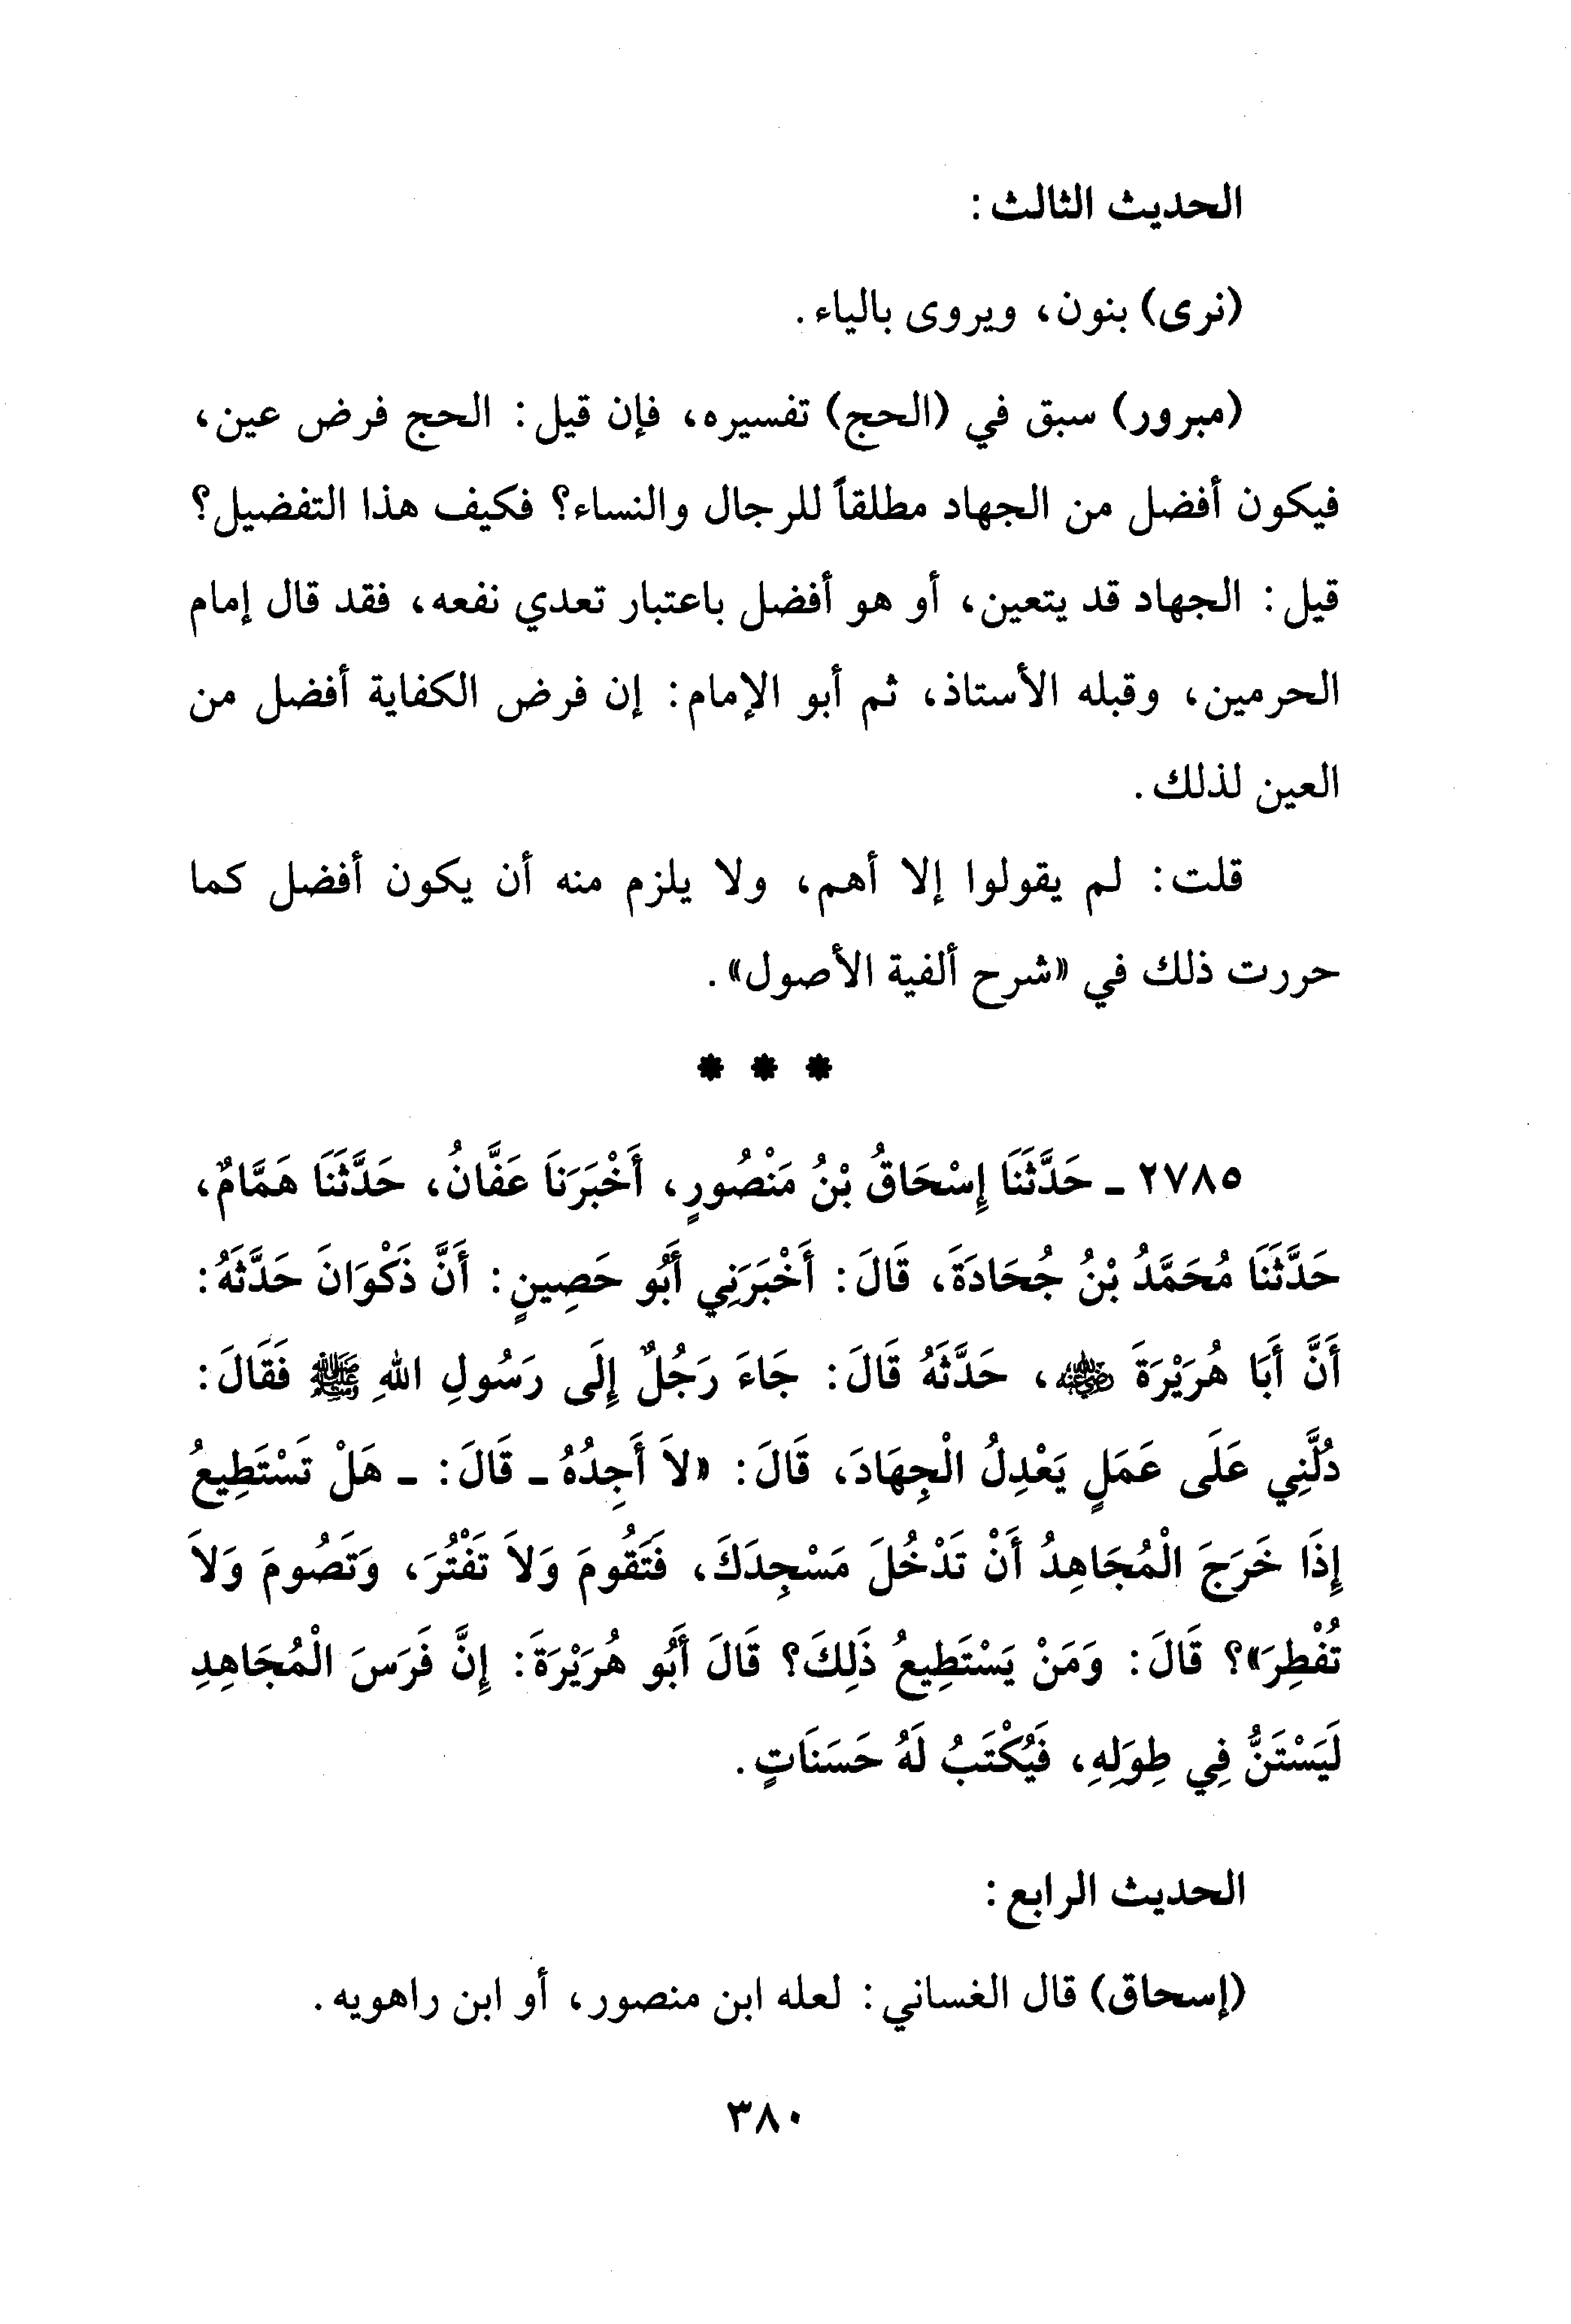 الحديث الثالث:
(نرى) بنون، ويروى بالياء.
(مبرور) سبق في (الحج) تفسيره، فإن قيل: الحج فرض عين،
فيكون أفضل من الجهاد مطلقاً للرجال والنساء؟ فكيف هذا التفضيل؟
قيل: الجهاد قد يتعين، أو هو أفضل باعتبار تعدي نفعه، فقد قال إمام
الحرمين، وقبله الأستاذ، ثم أبو الإمام: إن فرض الكفاية أفضل من
العين لذلك.
قلت: لم يقولوا إلا أهم، ولا يلزم منه أن يكون أفضل كما
حررت ذلك في «شرح ألفية الأصول».
* * *
٢٧٨٥ ـ حَدَّثَنَا إِسْحَاقُ بْنُ مَنْصُورٍ، أَخْبَرَنَا عَفَّانُ، حَدَّثَنَا هَمَّامٌ،
حَدَّثَنَا مُحَمَّدُ بْنُ جُحَادَةَ، قَالَ: أَخْبَرَنِي أَبُو حَصِينٍ: أَنَّ ذَكْوَانَ حَدَّثَهُ:
أَنَّ أَبَا هُرَيْرَةَ ﵁، حَدَّثَهُ قَالَ: جَاءَ رَجُلٌ إِلَى رَسُولِ اللهِ ﷺ فَقَالَ:
دُلَّنِي عَلَى عَمَلٍ يَعْدِلُ الْجِهَادَ، قَالَ: «لاَ أَجِدُهُ ـ قَالَ: ـ هَلْ تَسْتَطِيعُ
إِذَا خَرَجَ الْمُجَاهِدُ أَنْ تَدْخُلَ مَسْجِدَكَ، فَتَقُومَ وَلاَ تَفْتُرَ، وَتَصُومَ وَلاَ
تُفْطِرَ»؟ قَالَ: وَمَنْ يَسْتَطِيعُ ذَلِكَ؟ قَالَ أَبُو هُرَيْرَةَ: إِنَّ فَرَسَ الْمُجَاهِدِ
لَيَسْتَنُّ فِي طِوَلِهِ، فَيُكْتَبُ لَهُ حَسَنَاتٍ.
الحديث الرابع:
(إسحاق) قال الغساني: لعله ابن منصور، أو ابن راهويه.
٣٨٠